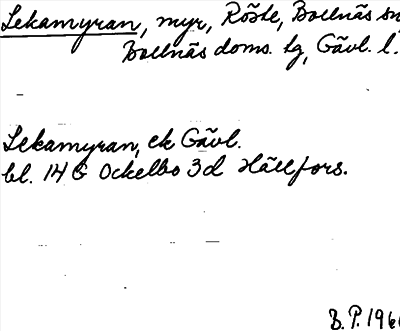 Lekamyran, myr, Röste, Bollnäs sn
Bollnäs doms. lg, Gävl. l.
Lekamyran, ek Gävl.
bl. 14 G Ockelbo 3d Hällfors.
B.P. 196